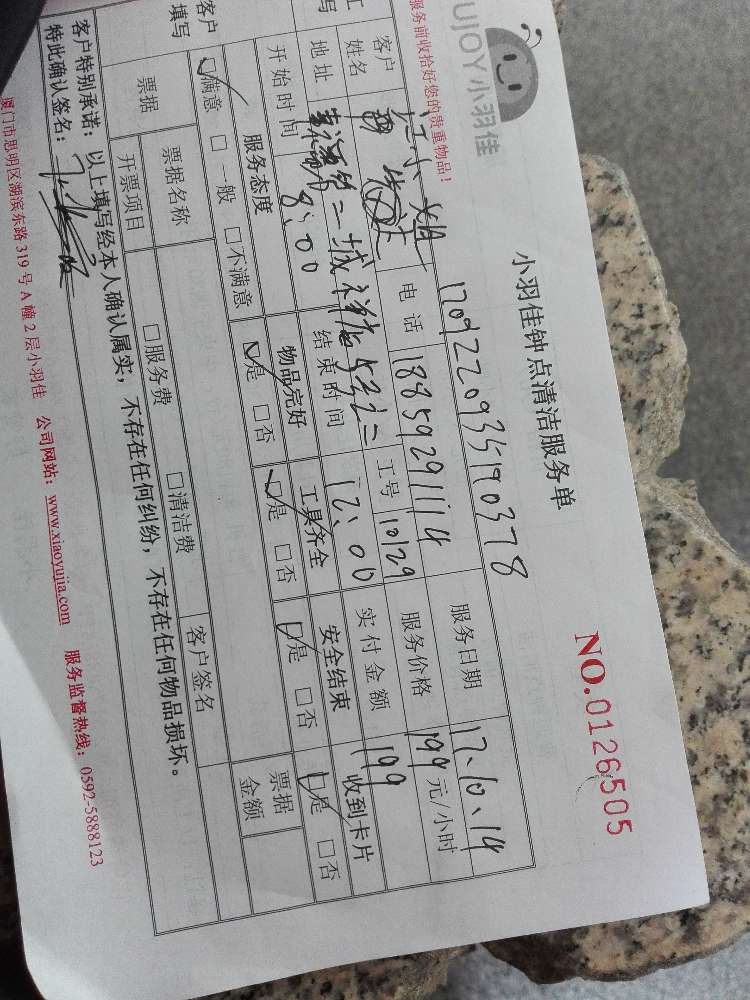 UJOY小羽佳
小羽佳钟点清洁服务单
NO.0126505
服务前收拾好您的贵重物品!
170922093590378
客户姓名 江小姐 电话 18859291114 服务日期 17.10.14
工号 10129 服务价格 199 元/小时
地址 禾祥 实付金额 199
开始时间 8:00 结束时间 12:00
客户填写 服务态度 物品完好 工具齐全 安全结束 收到卡片
☑满意 □一般 □不满意 ☑是 □否 ☑是 □否 ☑是 □否 ☑是 □否
票据 票据名称 票据金额
开票项目 □服务费 □清洁费 客户签名
客户特别承诺:以上填写经本人确认属实,不存在任何纠纷,不存在任何物品损坏。
特此确认签名:
厦门市思明区湖滨东路 319 号 A 幢 2 层小羽佳 公司网站:www.xiaoyujia.com 服务监督热线:0592-5888123